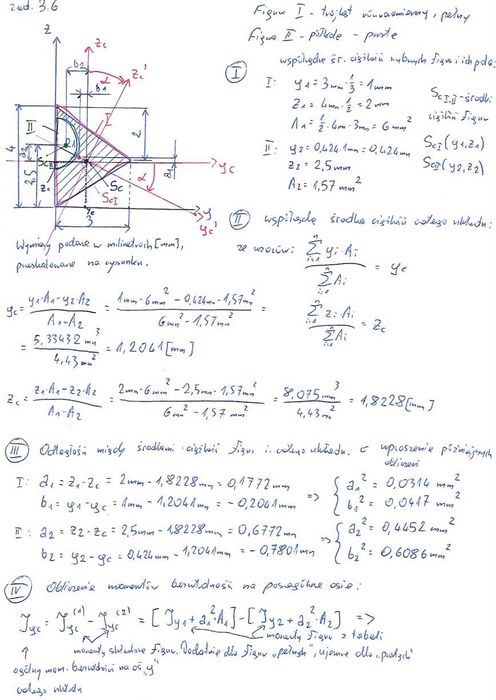 zad. 3.6
Figura I - trójkąt równoramienny, pełny
Figura II - półkole - puste
I współrzędne śr. ciężkości wybranych figur i ich pola:
I: y₁ = 3mm·1/3 = 1mm
z₁ = 4mm·1/2 = 2mm
A₁ = 1/2·4m·3m = 6mm²
II: y₂ = 0,424·1m = 0,424m
z₂ = 2,5mm
A₂ = 1,57mm²
Sc I,II - środki
ciężkości figur
ScI (y₁,z₁)
ScII (y₂,z₂)
z
zc
zc'
b₂
α
b₁
I
II
4
2,5
a₂
2
a₁
ScII
Sc
ScI
yc
y
yc'
3
Wymiary podane w milimetrach [mm],
przeskalowane na rysunku.
II współrzędne środka ciężkości całego układu:
ze wzorów: Σ yi·Ai / Σ Ai = yc
Σ zi·Ai / Σ Ai = zc
yc = (y₁·A₁ - y₂·A₂)/(A₁-A₂) = (1mm·6mm² - 0,424m·1,57m²)/(6mm² - 1,57mm²) =
= 5,33432 mm³/4,43 mm² = 1,2041 [mm]
zc = (z₁·A₁ - z₂·A₂)/(A₁-A₂) = (2mm·6mm² - 2,5m·1,57m²)/(6mm² - 1,57mm²) = 8,075mm³/4,43m² = 1,8228 [mm]
III Odległości między środkami ciężkości figur i całego układu.
I: a₁ = z₁-zc = 2mm - 1,8228mm = 0,1772mm
b₁ = y₁-yc = 1mm - 1,2041mm = -0,2041mm => { a₁² = 0,0314 mm²
b₁² = 0,0417 mm²
II: a₂ = z₂-zc = 2,5mm - 1,8228mm = 0,6772mm
b₂ = y₂-yc = 0,424mm - 1,2041mm = -0,7801mm => { a₂² = 0,4452 mm²
b₂² = 0,6086 mm²
IV Obliczenie momentów bezwładności na poszczególne osie:
Jyc = Jyc⁽¹⁾ - Jyc⁽²⁾ = [Jy₁ + a₁²·A₁] - [Jy₂ + a₂²·A₂] =>
momenty figur z tabeli
momenty składowe figur. Dodatnie dla figur „pełnych”, ujemne dla „pustych”
ogólny mom. bezwładności na oś „y”
całego układu